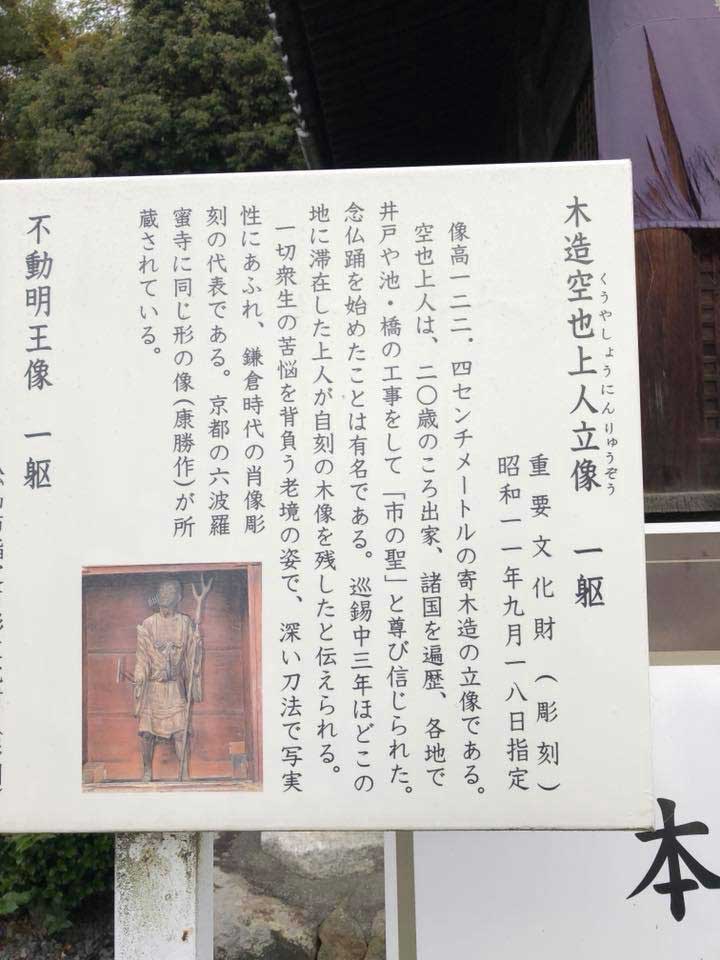 木造空也上人立像　一躯
くうやしょうにんりゅうぞう
重要文化財（彫刻）
昭和一一年九月一八日指定
像高一二二．四センチメートルの寄木造の立像である。
空也上人は、二〇歳のころ出家、諸国を遍歴、各地で
井戸や池・橋の工事をして「市の聖」と尊び信じられた。
念仏踊を始めたことは有名である。巡錫中三年ほどこの
地に滞在した上人が自刻の木像を残したと伝えられる。
一切衆生の苦悩を背負う老境の姿で、深い刀法で写実
性にあふれ、鎌倉時代の肖像彫
刻の代表である。京都の六波羅
蜜寺に同じ形の像（康勝作）が所
蔵されている。
不動明王像　一躯
本